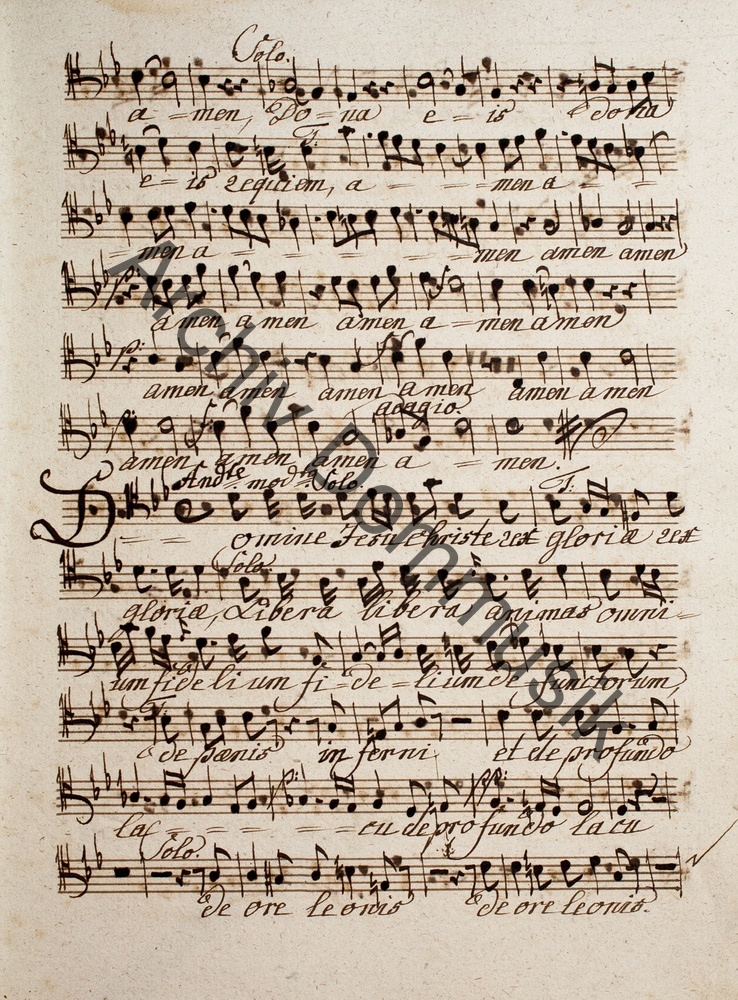 Solo.
a - men, Do - na e - is dona
T:
e - is requiem, a - - - men a - -
- men a - - - - - - men amen amen
p:
amen amen amen a - men amen
p: f
amen amen amen amen amen amen
adagio.
f:
amen amen amen a - men.
Andte modto Solo. T:
Domine Jesu Christe rex gloriæ rex
Solo.
gloriæ, Libera libera animas omni -
um fidelium fi - de - lium de functorum,
T:
de pænis in ferni et de profundo
p: pp:
lac - - - - - cu de profundo lacu
Solo.
de ore leonis de ore leonis.
Archiv Dommusik